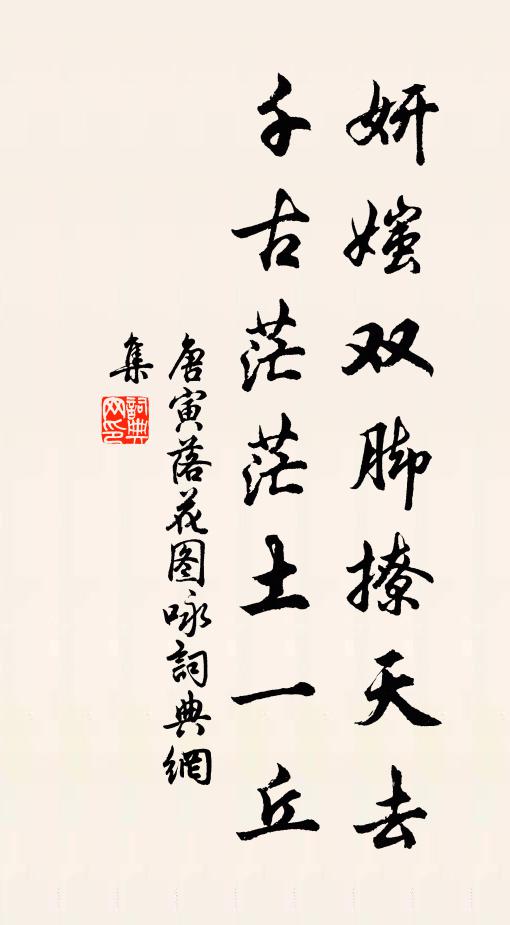 妍媸双脚撩天去
千古茫茫土一丘
唐寅落花图咏詞典網
集
詞典网印